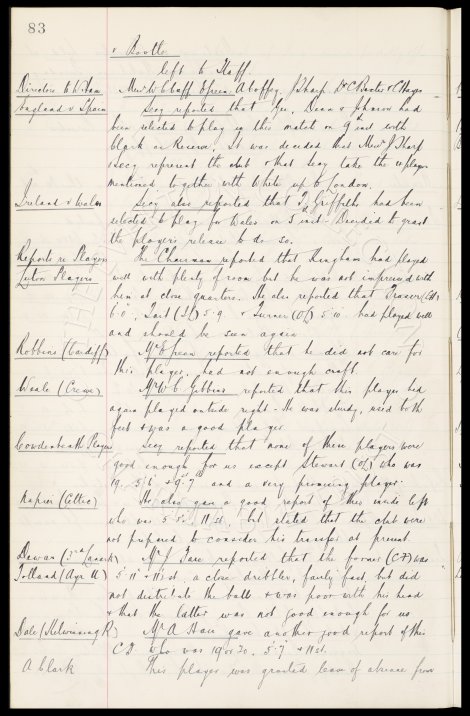 83
v Bootle
left to Staff.
Directors to W. Ham Messrs W. C. Cuff E. Green A. Coffey, J. Sharp Dr C. Baxter & C. Hayes
England v Spain Secy reported that Gee, Dean & Johnson had
been selected to play in this match on 9th inst with
Clark as Reserve. It was decided that Messrs J. Sharp
& Secy represent the club & that they take the players
mentioned together with White up to London.
Ireland v Wales Secy also reported that T. Griffiths had been
selected to play for Wales on 5th inst. Decided to grant
the player's release to do so.
Reports re Players The Chairman reported that Kingham had played
Luton Players well with plenty of room but he was not impressed with
him at close quarters. He also reported that Fraser (CH)
6.0, (IL) 5.9. & Turner (OL) 5.10. had played well
and should be seen again
Robbins (Cardiff) Mr E. Green reported that he did not care for
this player, had not enough craft
Weale (Crewe) Mr W. C. Gibbins reported that this player had
again played outside right. He was sturdy, used both
feet & was a good player
Cowdenbeath Players Secy reported that none of these players were
good enough for us except Stewart (OL) who was
19, 5.6 & 9st 7 and a very promising player.
Napier (Celtic) He also gave a good report of this inside left
who was 5.8. 11 st. but stated that the club were
not prepared to consider his transfer at present
Dewar (3rd Lanark) Mr J. reported that the former (CF) was
Tolland (Ayr U) 5.11 & 11 st, a close dribbler, fairly fast but did
not distribute the ball & was poor with his head
& that the latter was not good enough for us
Dale (Kilwinning R) Mr A. gave another good report of this
C.F. who was 19 or 20. 5.7 & 11 st.
A Clark This player was granted leave of absence from